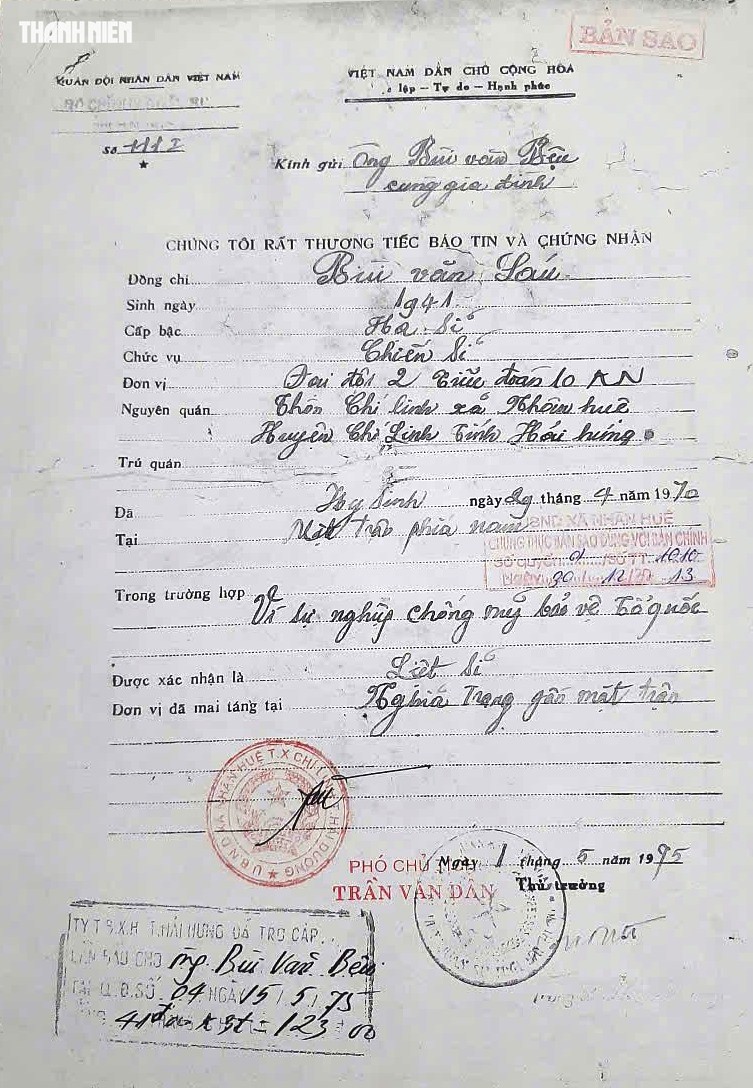 THANH NIÊN
BẢN SAO
QUÂN ĐỘI NHÂN DÂN VIỆT NAM
VIỆT NAM DÂN CHỦ CỘNG HÒA
lập – Tự do – Hạnh phúc
Số 1112
Kính gửi Ông Bùi văn Bệu
cùng gia đình
CHÚNG TÔI RẤT THƯƠNG TIẾC BÁO TIN VÀ CHỨNG NHẬN
Đồng chí Bùi văn Sáu
Sinh ngày 1941
Cấp bậc Hạ sĩ
Chức vụ Chiến sĩ
Đơn vị Đại đội 2 Tiểu đoàn 10 KN
Nguyên quán Thôn Chí linh xã Nhân huệ
Huyện Chí Linh Tỉnh Hải hưng
Trú quán
Đã Hy sinh ngày 29 tháng 4 năm 1970
Tại Mặt trận phía nam
UBND XÃ NHÂN HUỆ
CHỨNG THỰC BẢN SAO ĐÚNG VỚI BẢN CHÍNH
SỐ QUYỂN 01 /SỐ TT 1010
NGÀY 30 / 12 /20 13
Trong trường hợp Vì sự nghiệp chống mỹ bảo vệ Tổ quốc
Được xác nhận là Liệt sĩ
Đơn vị đã mai táng tại Nghĩa Trang gần mặt trận
U.B.N.D XÃ NHÂN HUỆ T.X CHÍ LINH T. HẢI DƯƠNG
Ngày 1 tháng 5 năm 1975
PHÓ CHỦ TỊCH
TRẦN VĂN DẦN
Thủ trưởng
TY T.B.X.H T.HẢI HƯNG ĐÃ TRỢ CẤP
LẦN SAU CHO ông Bùi Văn Bệu
TẠI Q.Đ.SỐ 04 NGÀY 15/5/75
41đ x 3t = 123 00